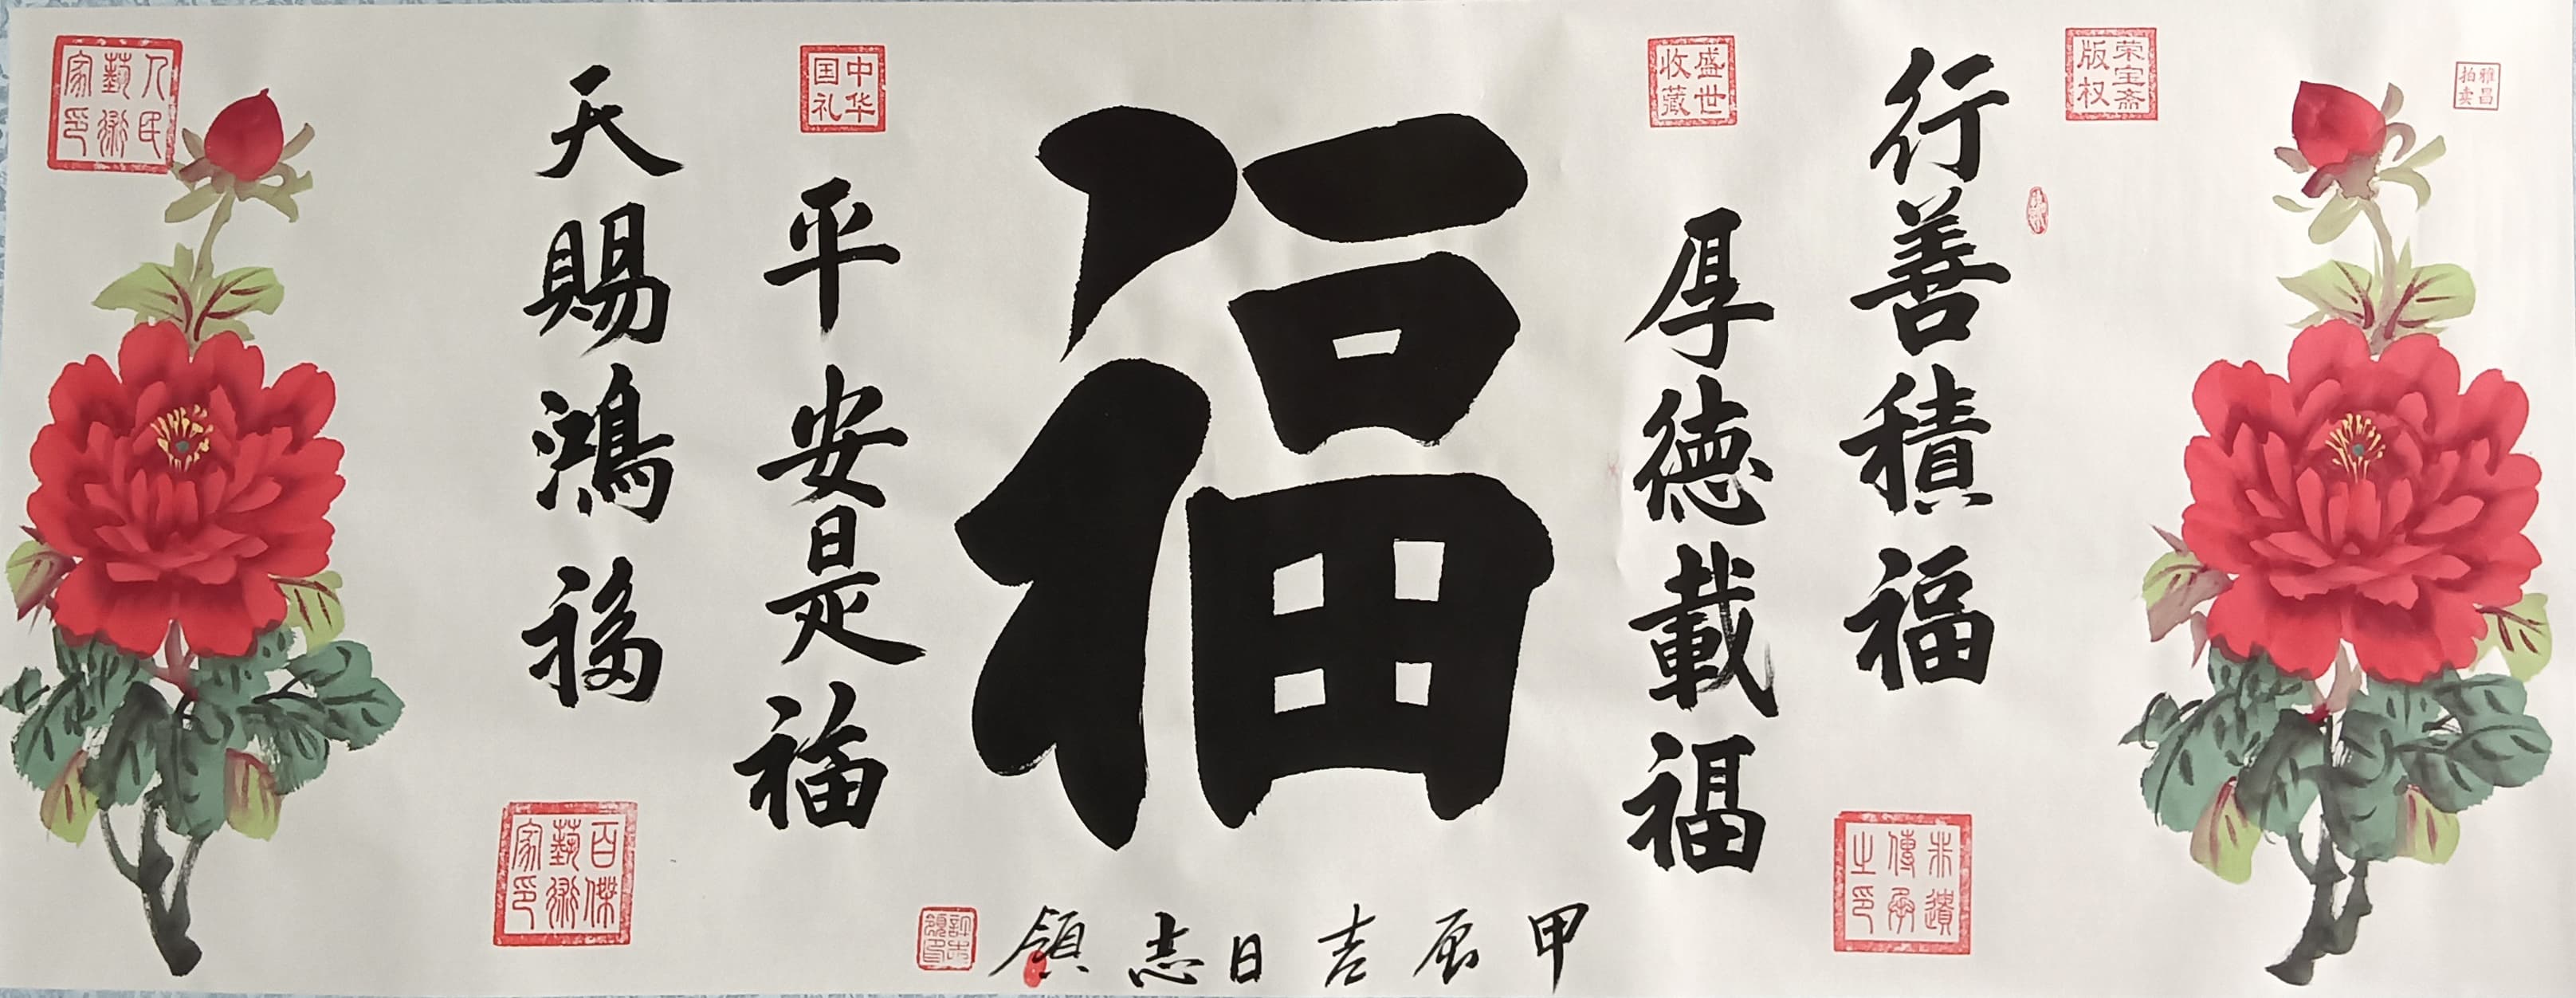 雅昌拍卖
荣宝斋版权
行善積福
非遺傳承之印
盛世收藏
厚德載福
福
甲辰吉日志領
中华国礼
平安是福
天賜鴻福
百傑藝術家印
人民藝術家印